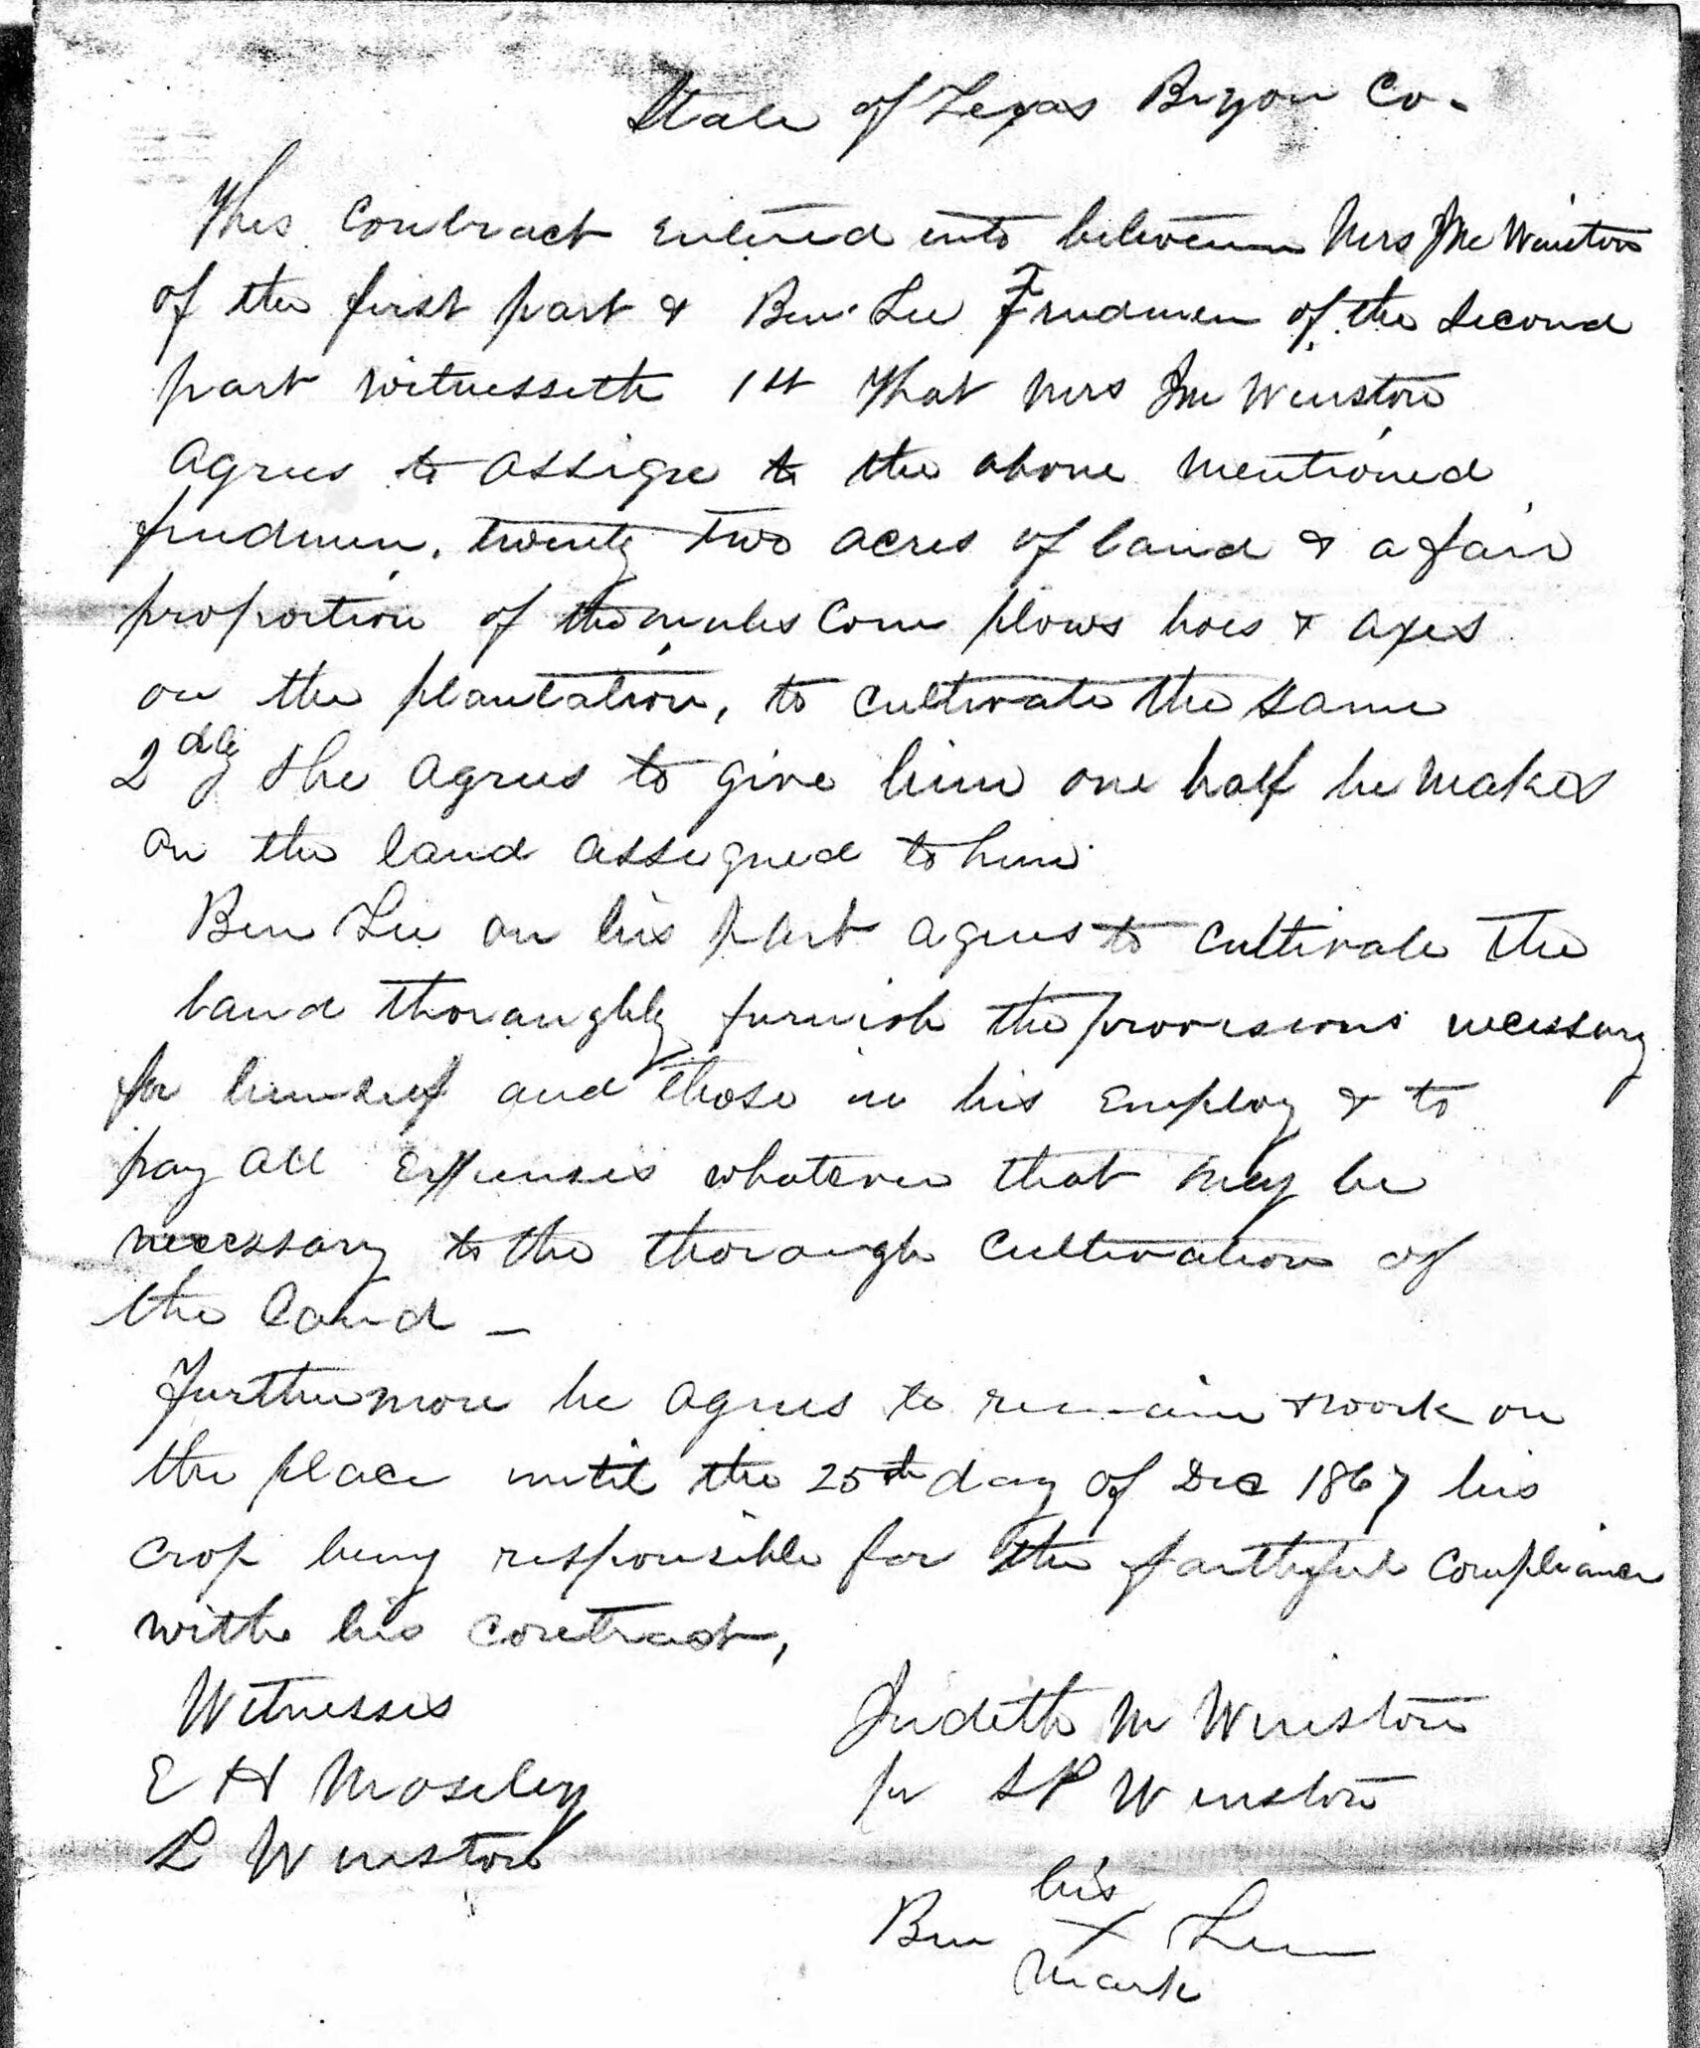 State of Texas Bryon Co-
This Contract Entered into between Mrs JM Winston
of the first part & Ben Lee Freedmen of the Second
part witnesseth 1st That Mrs JM Winston
agrees to assign to the above mentioned
freedmen, twenty two acres of land & a fair
proportion of the mules Corn plows hoes & axes
on the plantation, to cultivate the same
2dly She agrees to give him one half he makes
on the land assigned to him
Ben Lee on his part agrees to cultivate the
land thoroughly furnish the provisions necessary
for himself and those in his Employ & to
pay all Expenses whatever that may be
necessary to the thorough cultivation of
the land —
Furthermore he agrees to remain & work on
the place until the 25th day of Dec 1867 his
crop being responsible for the faithful compliance
with his contract,
Witnesses
E H Moseley
L Winston
Judith M Winston
per LP Winston
his
Ben X Lee
mark